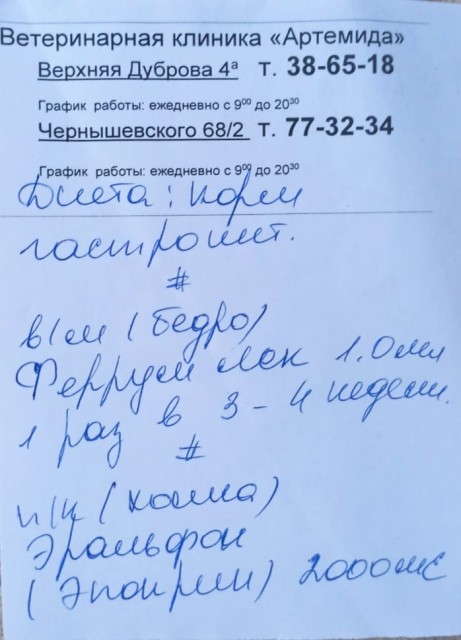 Ветеринарная клиника «Артемида»
Верхняя Дуброва 4ª т. 38-65-18
График работы: ежедневно с 9⁰⁰ до 20³⁰
Чернышевского 68/2 т. 77-32-34
График работы: ежедневно с 9⁰⁰ до 20³⁰
Диета: корм
гастроинт.
#
в/м (бедро)
Феррум лек 1.0 мл
1 раз в 3-4 недели.
#
п/к (холка)
Эральфон
(Эпокрин) 2000 МЕ